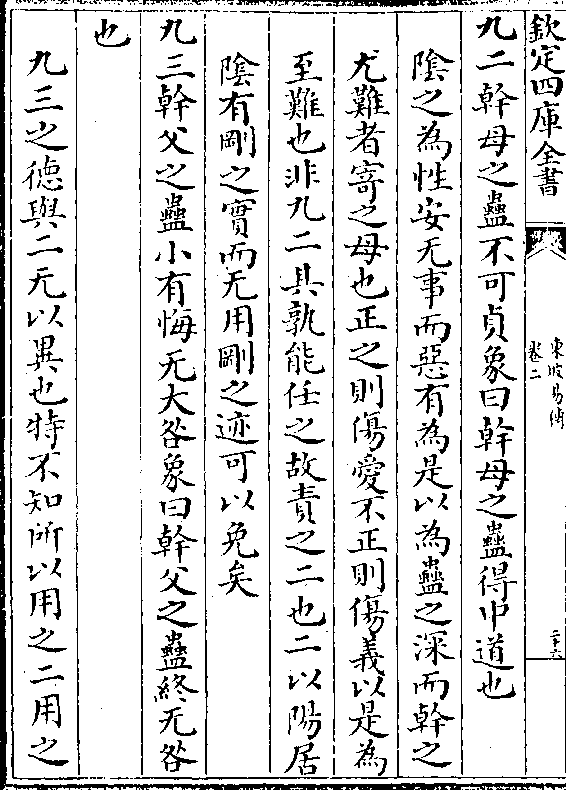 欽定四庫全書
東坡易傳
卷二
二十六
九二幹母之蠱不可貞象曰幹母之蠱得中道也
陰之為性安无事而惡有為是以為蠱之深而幹之
尤難者寄之母也正之則傷愛不正則傷義以是為
至難也非九二其孰能任之故責之二也二以陽居
陰有剛之實而无用剛之迹可以免矣
九三幹父之蠱小有悔无大咎象曰幹父之蠱終无咎
也
九三之德與二无以異也特不知所以用之二用之